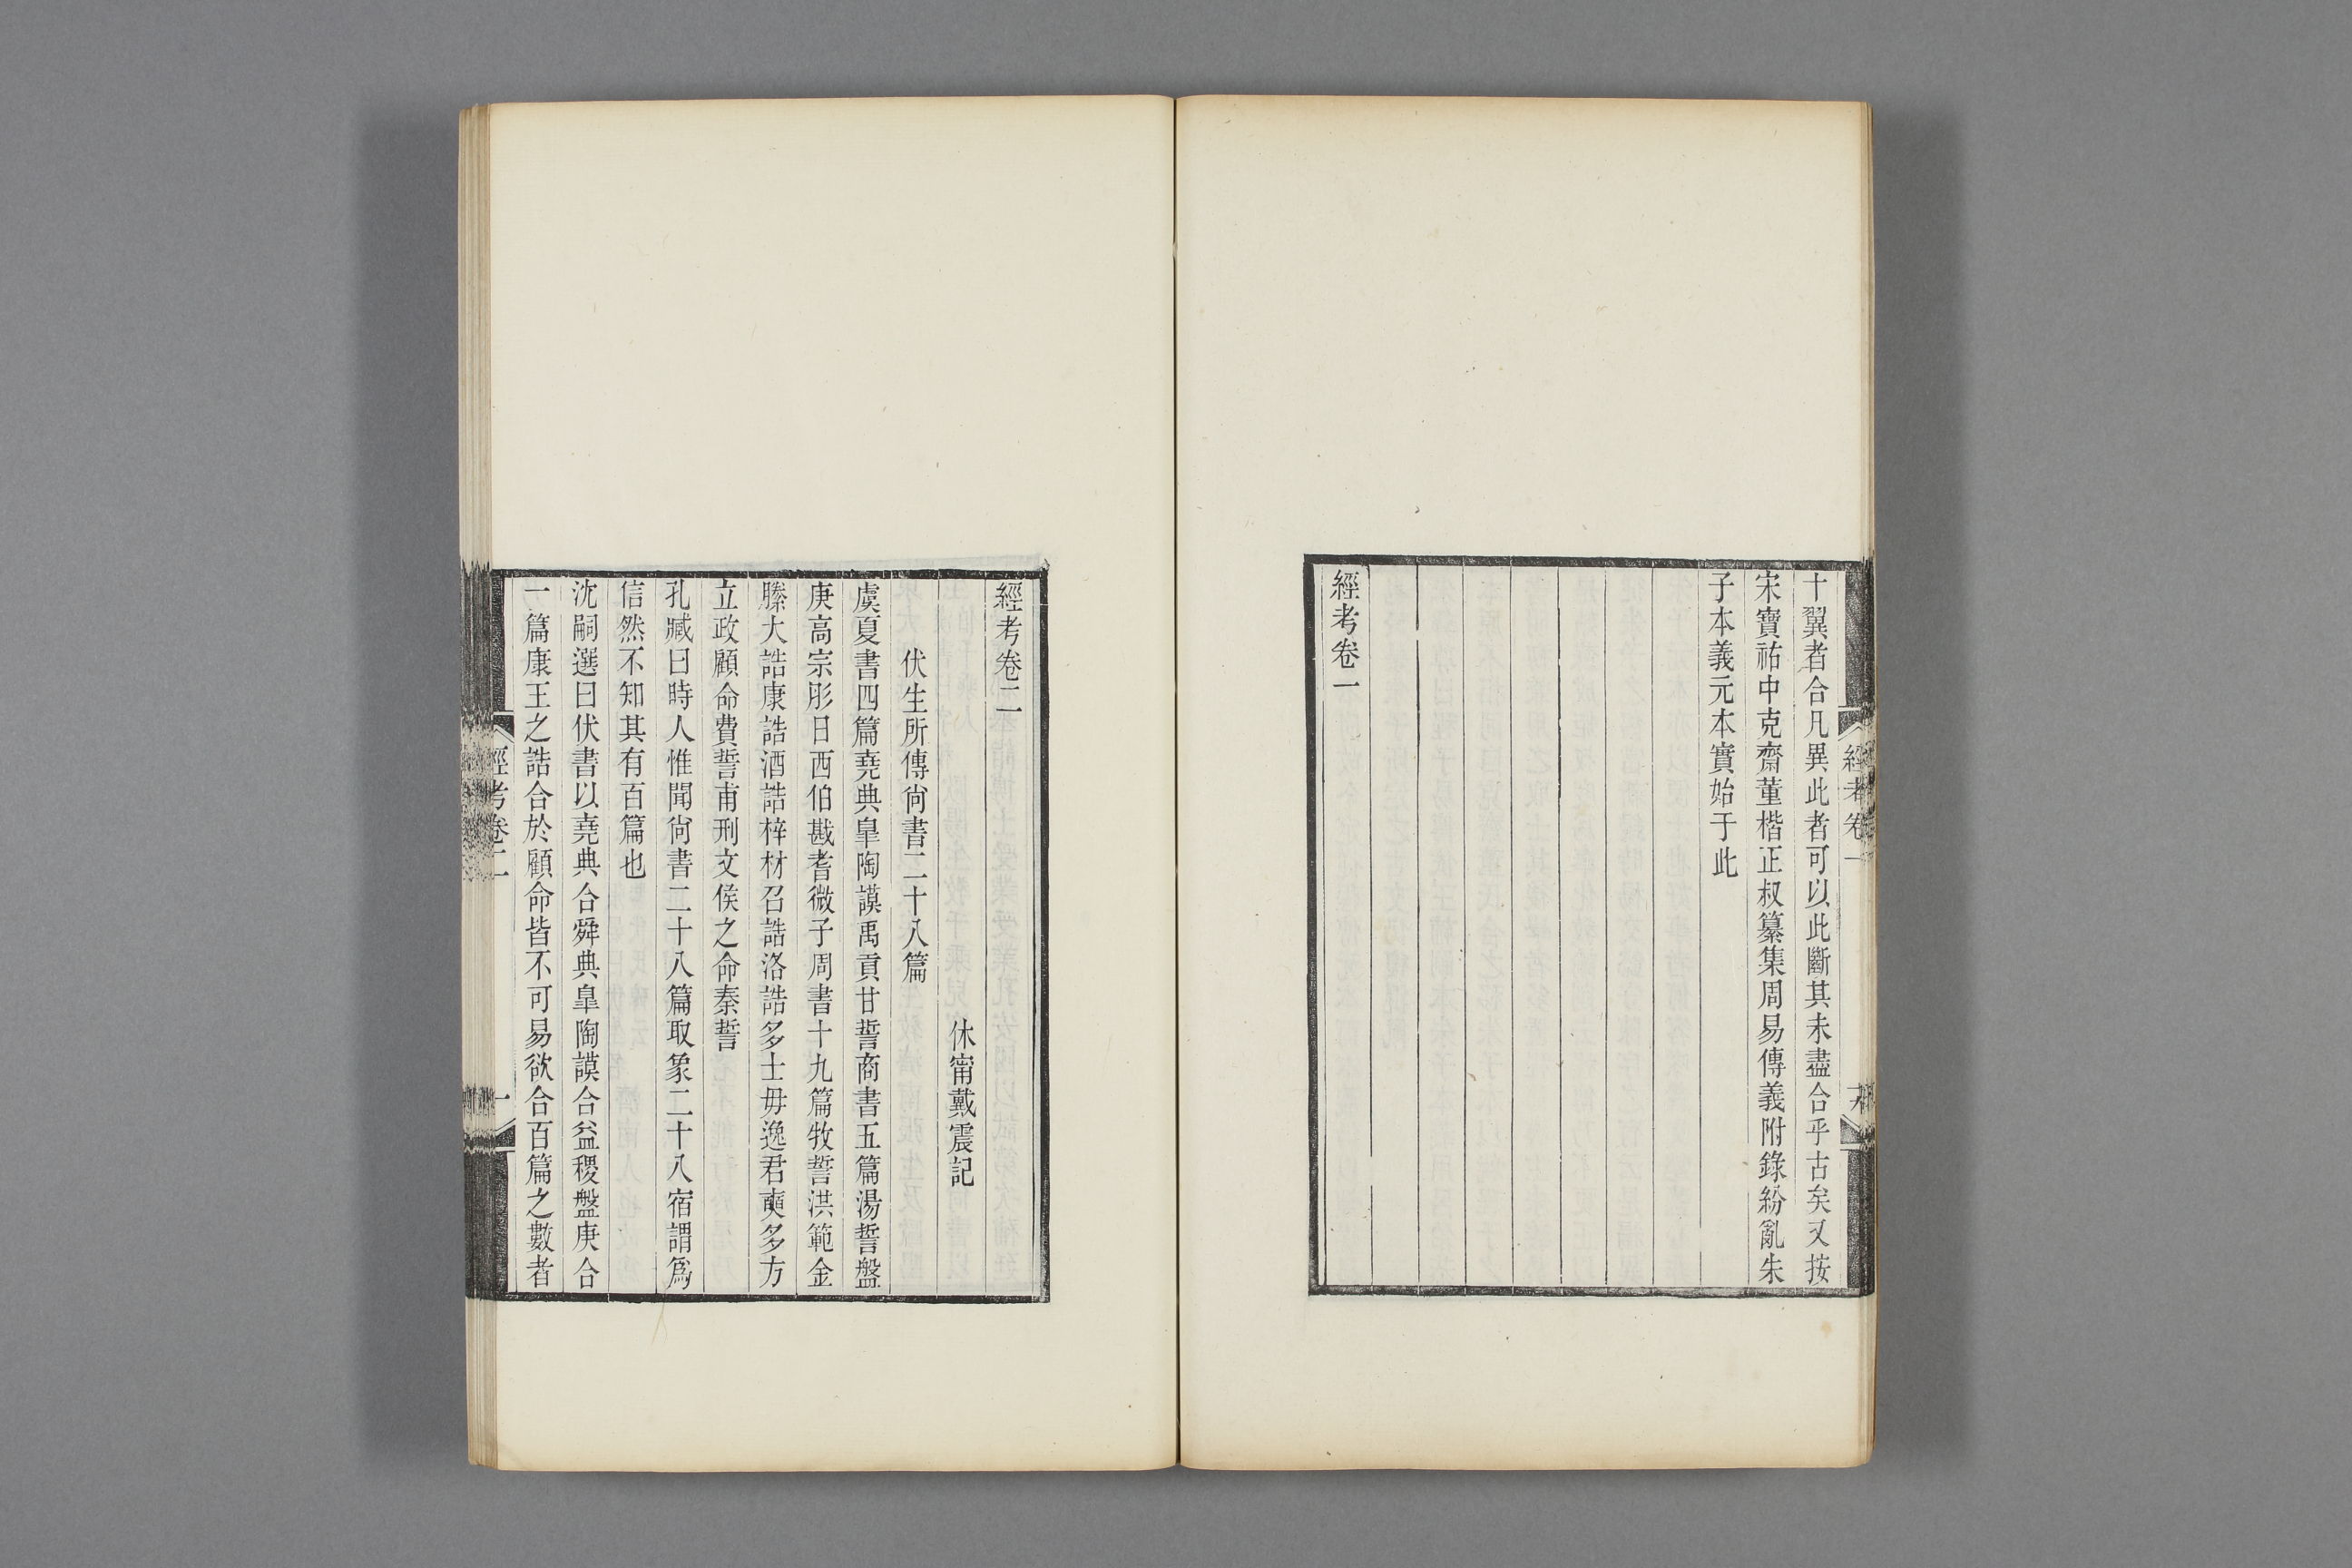 十翼者合凡異此者可以此斷其未盡合乎古矣又按
宋寶祐中克齋董楷正叔纂集周易傳義附錄紛亂朱
子本義元本實始于此
經考卷一
經考卷一
經考卷二
休甯戴震記
伏生所傳尙書二十八篇
虞夏書四篇堯典皐陶謨禹貢甘誓商書五篇湯誓盤
庚高宗肜日西伯戡耆微子周書十九篇牧誓洪範金
縢大誥康誥酒誥梓材召誥洛誥多士毋逸君奭多方
立政顧命費誓甫刑文侯之命秦誓
孔臧曰時人惟聞尙書二十八篇取象二十八宿謂爲
信然不知其有百篇也
沈嗣選曰伏書以堯典合舜典皐陶謨合益稷盤庚合
一篇康王之誥合於顧命皆不可易欲合百篇之數者
經考卷二
一